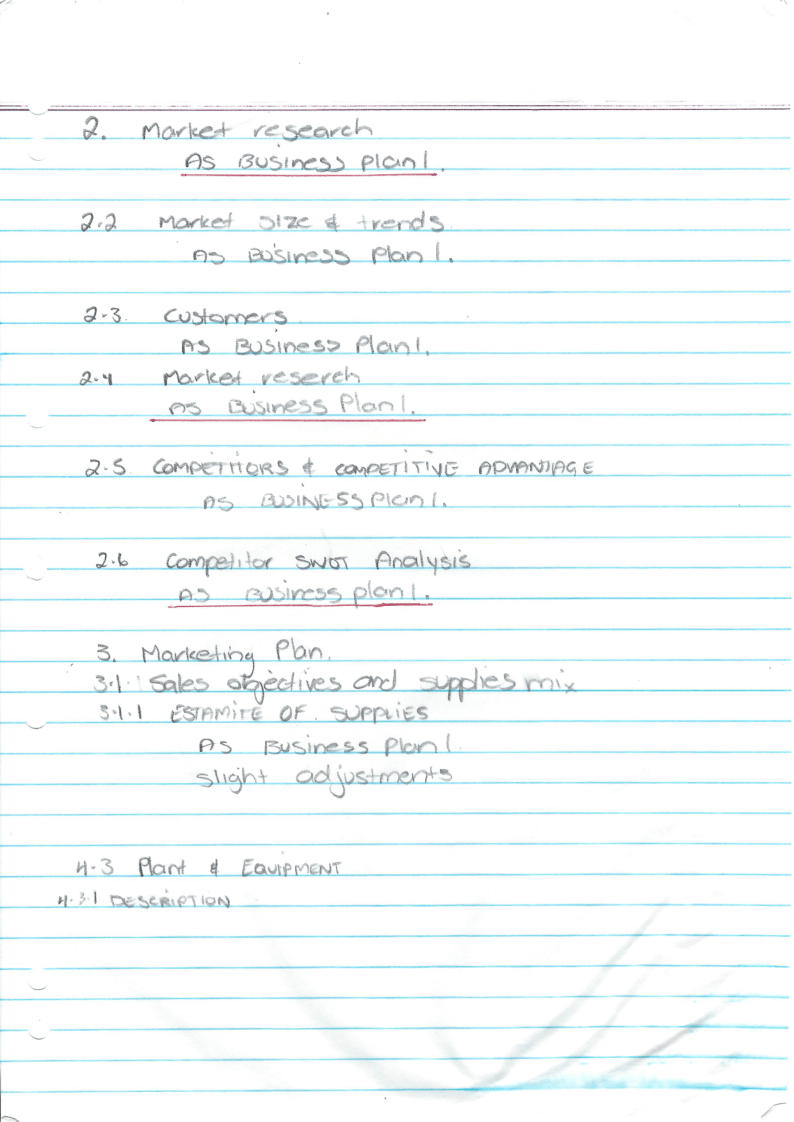 2. Market research
As Business plan 1.
2.2 Market size & trends
As Business Plan 1.
2.3 Customers
As Business Plan 1.
2.4 Market reserch
As Business Plan 1.
2.5 COMPETITIORS & COMPETITIVE ADVANTAGE
As BUSINESS Plan 1.
2.6 Competitor SWOT Analysis
As Business plan 1.
3. Marketing Plan.
3.1. Sales objectives and supplies mix
3.1.1 ESTAMITE OF SUPPLIES
As Business Plan 1
slight adjustments
4.3 Plant & EQUIPMENT
4.3.1 DESCRIPTION